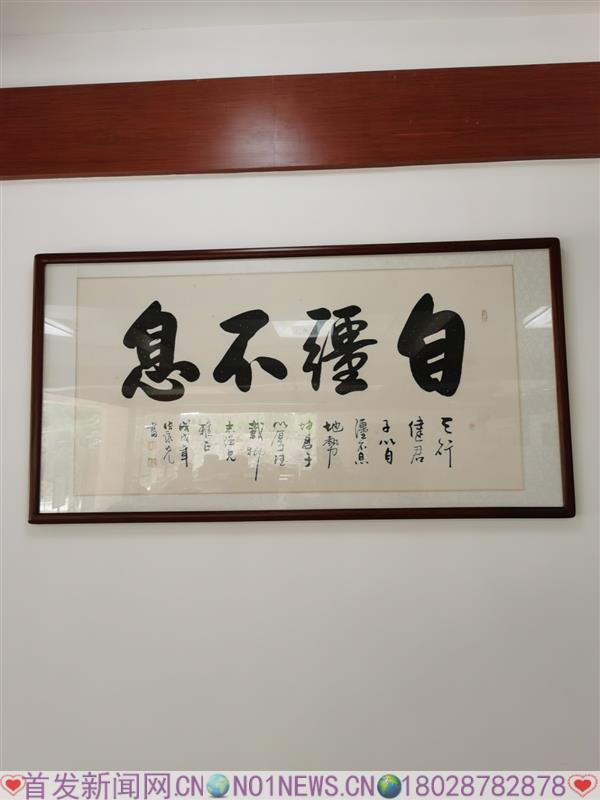 自彊不息
天行
健君
子以自
彊不息
地勢
坤君子
以厚德
載物
雅正
戊戌年
首发新闻网.CN NO1NEWS.CN 18028782878